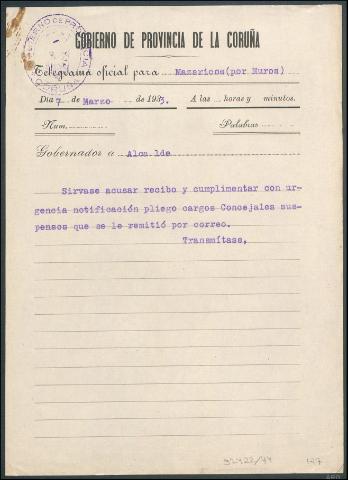 GOBIERNO DE PROVINCIA DE LA CORUÑA
Telegrama oficial para Mazaricos (por Muros)
Día 7 de Marzo de 1933. A las horas y minutos.
Núm. Palabras
Gobernador a Alcalde
Sirvase acusar recibo y cumplimentar con ur-
gencia notificación pliego cargos Concejales sus-
pensos que se le remitió por correo.
Transmítase,
32422/44 127